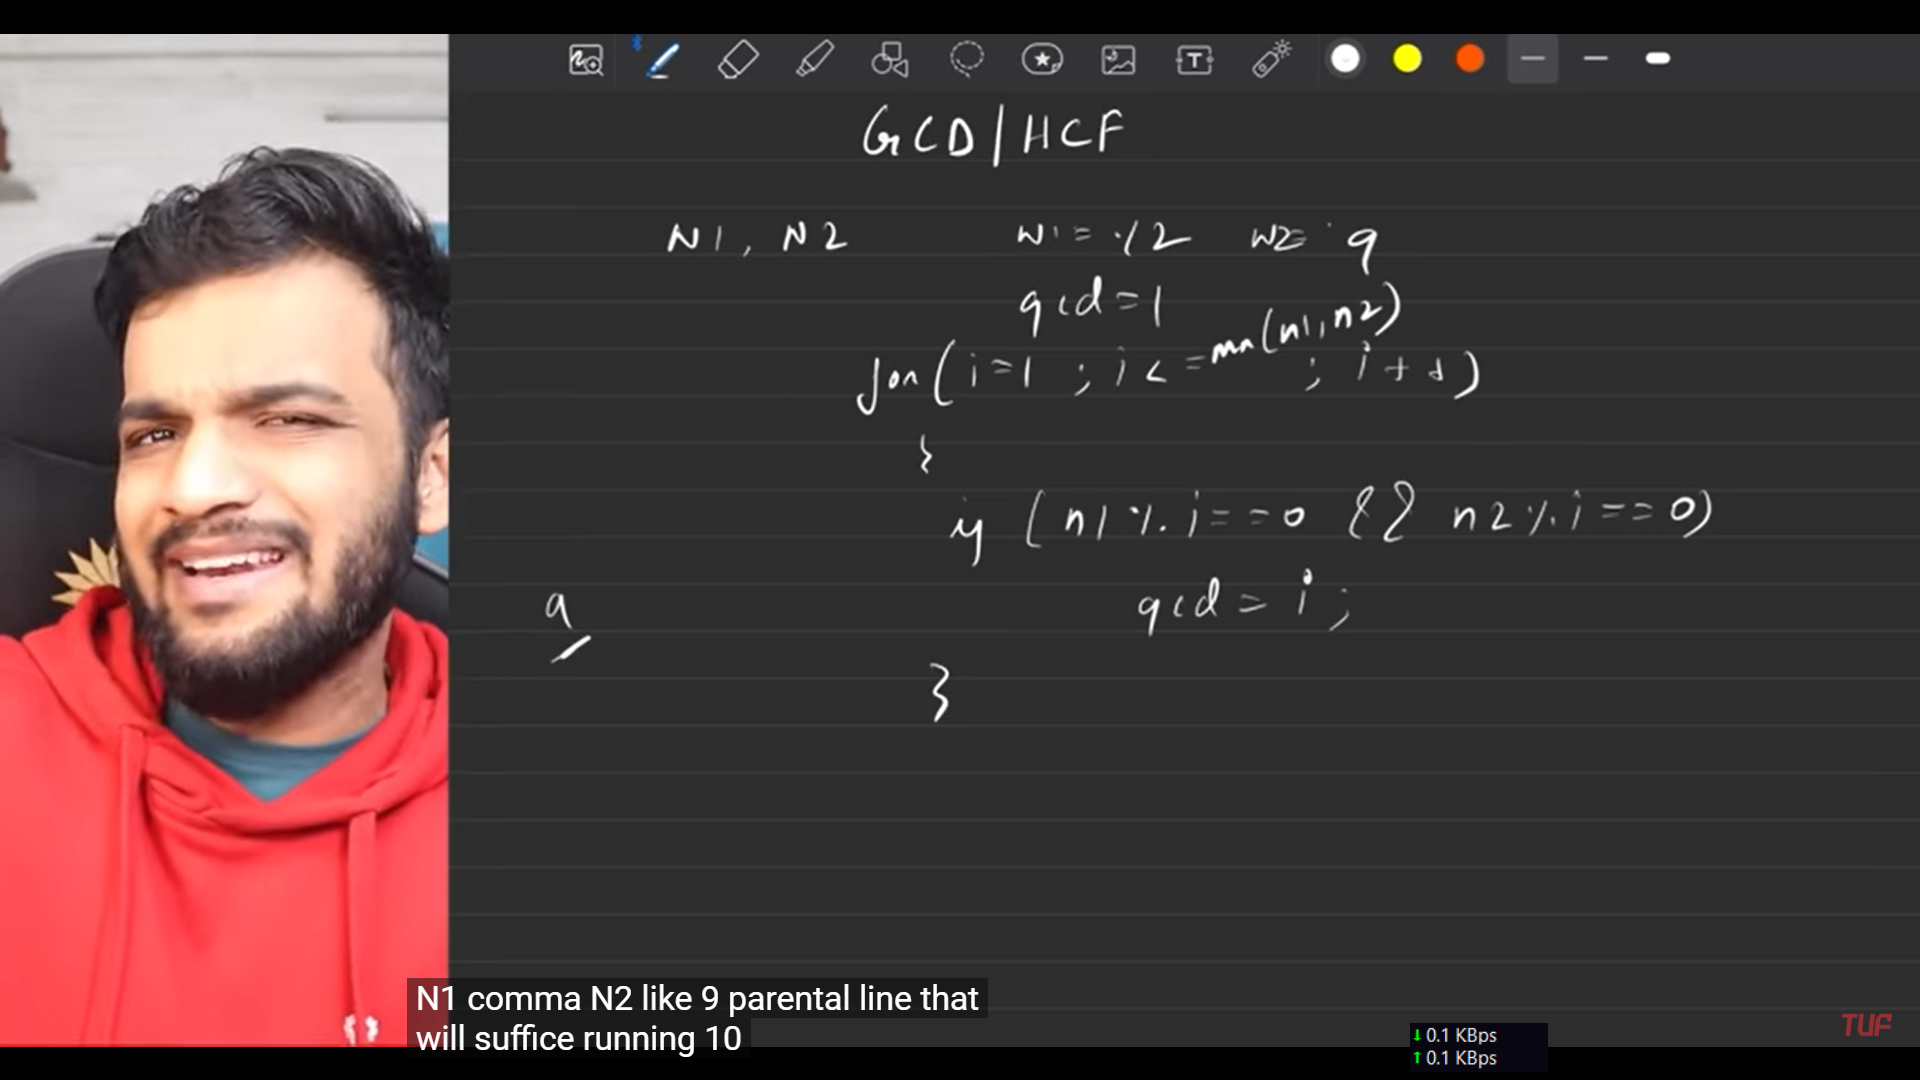 GCD/HCF
N1, N2 N1 = 12 N2 = 9
gcd = 1
min(n1, n2)
for(i=1 ; i<= ; i++)
{
if (n1 % i == 0 && n2 % i == 0)
gcd = i ;
a
}
N1 comma N2 like 9 parental line that
will suffice running 10
↓ 0.1 KBps
↑ 0.1 KBps
TUF